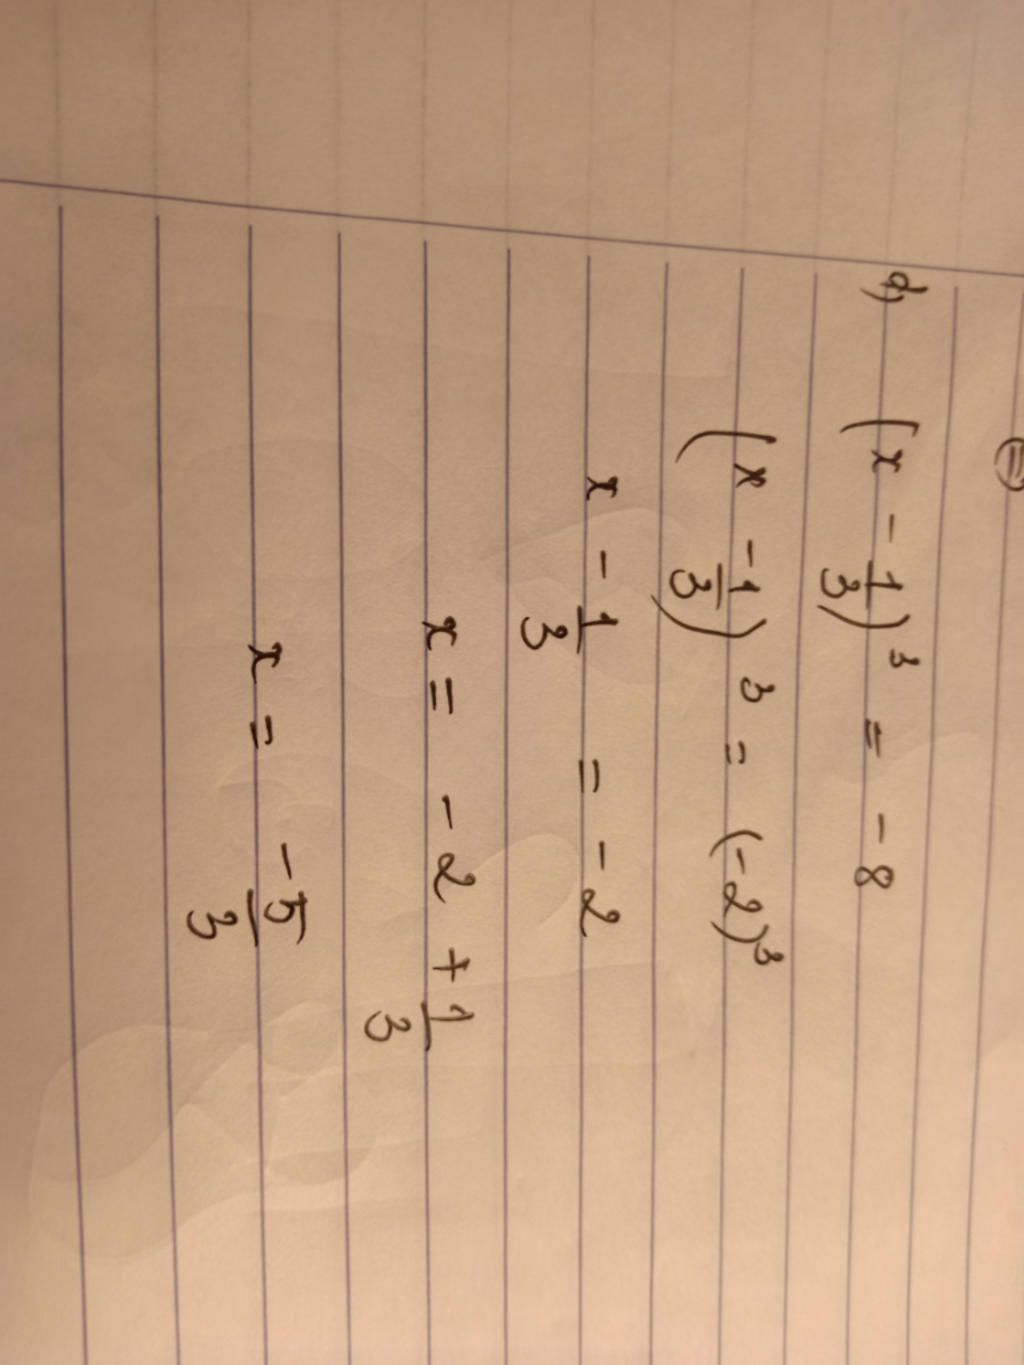 d) (x - 1/3)³ = -8
(x - 1/3)³ = (-2)³
x - 1/3 = -2
x = -2 + 1/3
x = -5/3